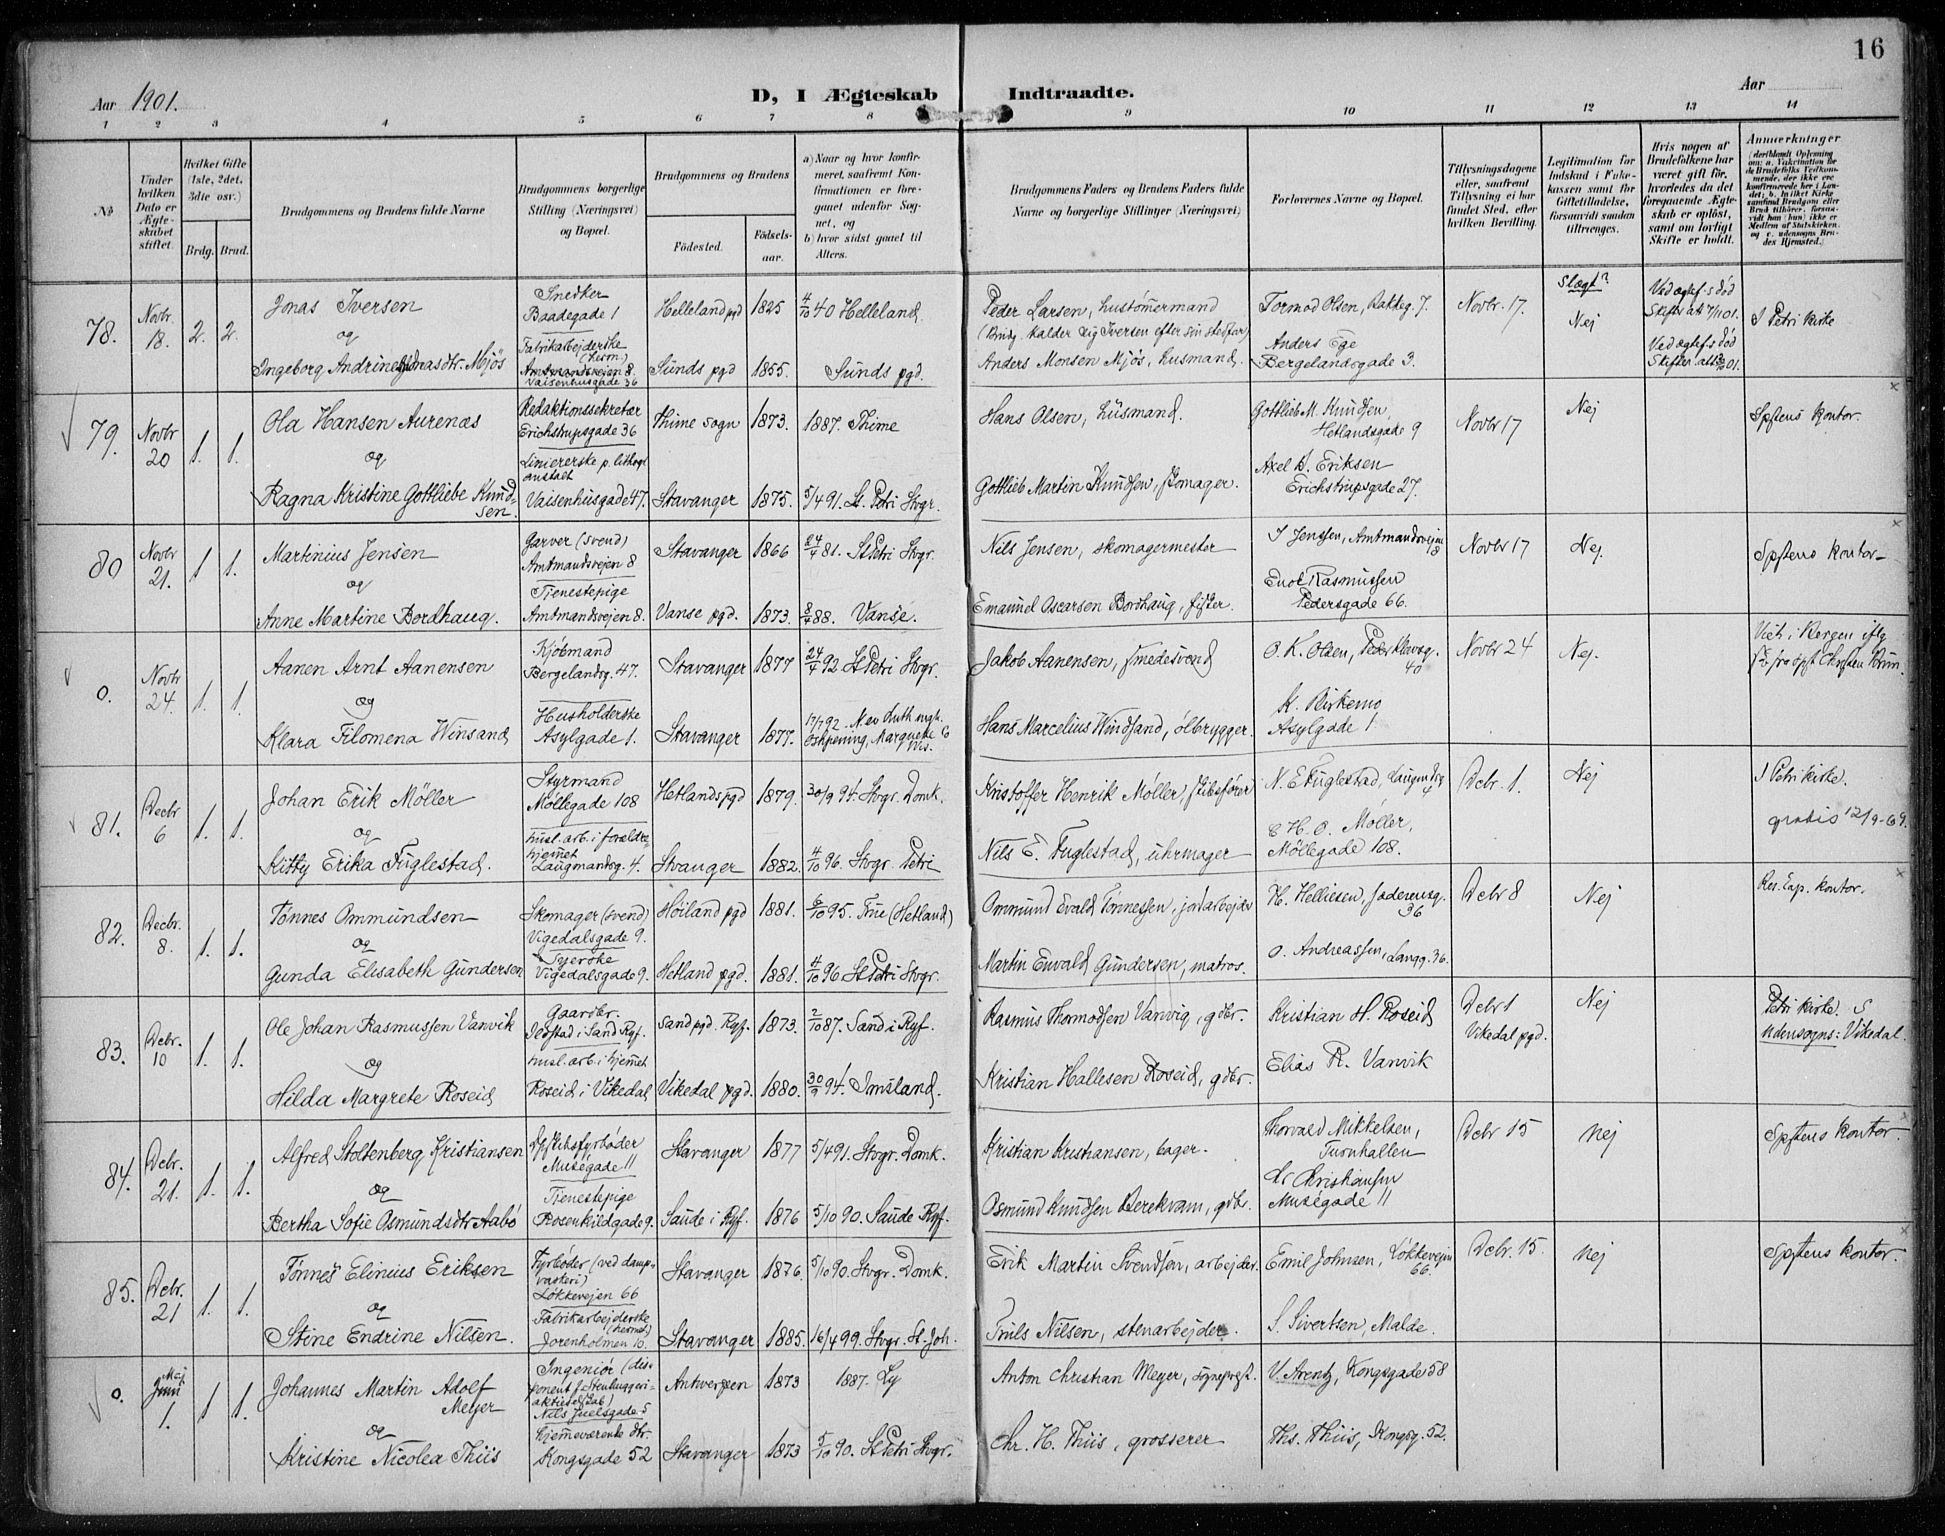 16
Aar 1901.
D, I Ægteskab Indtraadte.
Aar
1 2 3 4 5 6 7 8 9 10 11 12 13 14
No
Under hvilken Dato er Ægteskabet stiftet.
Hvilket Gifte (1ste, 2det, 3die osv.)
Brdg. Brud.
Brudgommens og Brudens fulde Navne
Brudgommens borgerlige Stilling (Næringsvei) og Bopæl.
Brudgommens og Brudens
Födested.
Födselsaar.
a) Naar og hvor konfirmeret, saafremt Konfirmationen er foregaaet udenfor Sognet, og
b) hvor sidst gaaet til Alters.
Brudgommens Faders og Brudens Faders fulde Navne og borgerlige Stillinger (Næringsvei)
Forlovernes Navne og Bopæl.
Tillysningsdagene eller, saafremt Tillysning ei har fundet Sted, efter hvilken Bevilling.
Legitimation for Indskud i Enkekassen samt for Giftetilladelse, forsaavidt saadan tiltrænges.
Hvis nogen af Brudefolkene har været gift för, hvorledes da det foregaaende Ægteskab er oplöst, samt om lovligt Skifte er holdt.
Anmærkninger
78. Novbr. 18. 2. 2.
Jonas Iversen
og
Ingeborg Andrine Mjøs
Snedker
Baadegade 1
Fabrikarbejderske
Amtmandsvejen 8.
Vaisenhusgade 36
Helleland pgd 1825 4/10 40 Helleland.
Sunds pgd 1855. Sunds pgd.
Peder Larsen, hustømermand
(Brudg. kalder sig Iversen efter sin stedfar)
Anders Monsen Mjøs, husmand.
Tormod Olsen, Bakkeg. 7.
Anders Ege
Bergelandsgade 3.
Novbr. 17.
Slægt?
Nej
Ved ægtef.s død
Ved ægtef.s død
I Petri kirke
79. Novbr 20 1. 1.
Ola Hansen Aurenæs
og
Ragna Kristine Gottliebe Knudsen.
Redaktionssekretær
Erichstrupsgade 36
Liniererske p. lithogr. anstalt
Vaisenhusgade 47.
Thime sogn 1873. 1887. Thime
Stavanger 1875. 5/4 91. St. Petri Stvgr.
Hans Olsen, husmand.
Gottlieb Martin Knudsen, skomager.
Gottlieb M. Knudsen,
Hetlandsgade 9
Axel D. Eriksen
Erichstrupsgade 27.
Novbr 17
Nej
Spstens kontor.
80 Novbr 21. 1 1.
Martinius Jensen
og
Anne Martine Bordhaug.
Garver (Svend)
Amtmandsvejen 8
Tjenestepige
Amtmandsvejen 8.
Stavanger 1866 24/4 81. St Petri Stvgr.
Vanse pgd. 1873. 8/4 88. Vanse.
Nils Jensen, skomagermester
Emanuel Oscarsen Bordhaug, fisker.
I Jenssen, Amtmandsvejen 8
Enok Rasmussen
Pedersgade 66.
Novbr 17
Nej.
Spstens kontor
0. Novbr 24. 1. 1.
Aanen Arnt Aanensen
og
Klara Filomena Winsand
Kjøbmand
Bergelandsg. 47.
Husholderske
Asylgade 1.
Stavanger 1877 24/4 92 St Petri Stvgr.
Stavanger 1877. 17/7 92. N. ev luth mgh.
Jakob Aanensen, smedesvend
Hans Marcelius Windsand, ølbrygger.
O. K. Olsen, Peder Klowsg. 40
K. Birkemo
Asylgade 1
Novbr 24
Nej.
Viet i Bergen iflg
81. Decbr 6 1. 1.
Johan Erik Möller
og
Kitty Erika Fuglestad.
Styrmand
Möllegade 108
husl. arb. i forældrehjemet
Laugmandsg. 4.
Hetlands pgd 1879. 30/9 94. Stvgr. Domk.
Stvanger 1882. 4/10 96. Stvgr. Petri
Kristoffer Henrik Møller, skibsfører
Nils E. Fuglestad, uhrmager
N. E Fuglestad, Laugmdsg 4
C H. O. Møller,
Möllegade 108.
Decbr. 1.
Nej
I Petri kirke.
gratis 12/9-69.
82. Decbr. 8. 1. 1.
Tönnes Ommundsen
og
Gunda Elisabeth Gundersen
Skomager (svend)
Vigedalsgade 9.
Syerske
Vigedalsgade 9.
Høiland pgd 1881. 8/10 95. Frue (Hetland)
Hetland pgd. 1881. 4/10 96 St Petri Stvgr.
Ommund Evald Tönnessen, jordarbejder
Martin Euvald Gundersen, matros.
H. Helliesen, Jaderensg. 36
O. Andreassen, Langg. 36.
Decbr 8
Nej
Res. Cap. kontor.
83. Decbr. 10 1. 1.
Ole Johan Rasmussen Vanvik
og
Hilda Margrete Roseid
Gaardbr.
Ilostad i Sand Ryf.
husl. arb. i hjemet
Roseid i Vikedal
Sand pgd. Ryf. 1873. 2/10 87. Sand i Ryf.
Vikedal pgd. 1880. 30/9 94. Imsland.
Rasmus Thormodsen Vanvig, gdbr.
Kristian Hallesen Roseid, gdbr.
Kristian H. Roseid
Elias R. Vanvik
Decbr 1
Vikedal pgd.
Nej
Petri kirke.
Udensogns: Vikedal.
84. Decbr. 21. 1. 1.
Alfred Stoltenberg Kristiansen
og
Bertha Sofie Osmundsdtr Aabö
Dpskibsfyrbøder
Musègade 11
Tjenestepige
Rosenkildgade 9.
Stavanger 1877 5/4 91. Stvgr. Domk.
Saude i Ryf. 1876 5/10 90. Saude Ryf.
Kristian Kristiansen, bager.
Osmund Knudsen Berekvam, gdbr.
Thorvald Mikkelsen,
Turnhallen
Kr Christiansen
Musègade 11
Decbr 15
Nej
Spstens kontor.
85. Decbr. 21 1. 1.
Tönnes Elinius Eriksen
og
Stine Endrine Nilsen.
Fyrbøder (ved dampvaskeri)
Løkkevejen 66
Fabrikarbejderske (hermet)
Jorenholmen 10.
Stavanger 1876. 5/10 90. Stvgr. Domk.
Stavanger 1885. 16/4 99. Stvgr. St. Joh.
Erik Martin Svendsen, arbejder.
Truls Nilsen, stenarbejder.
Emil Johnsen, Løkkevejen 66.
S. Sivertsen, Malde.
Decbr. 15.
Nej
Spstens kontor.
0. Maj Juni 1. 1 1.
Johannes Martin Adolf Meyer
og
Kristine Nicolea Thiis
Ingeniör (disponent f. Stenhuggeriaktieselskab)
Nils Juelsgade 5
hjemeværende dtr.
Kongsgade 52
Antwerpen 1873 1887. Ly
Stavanger 1873 5/10 90. St Petri Stvgr.
Anton Christian Meyer, sogneprest.
Chr. H. Thiis, grosserer
V. Arentz, Kongsgade 58
Ths. Thiis, Kongsg. 52.